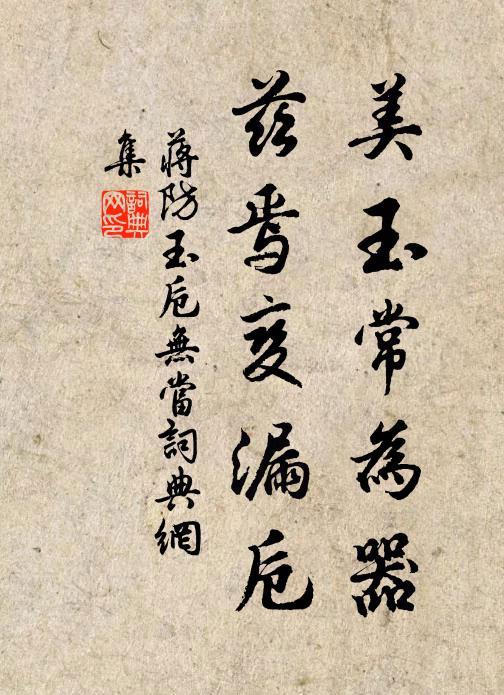 美玉常為器
茲焉變漏卮
蔣防玉卮無當詞典網
集
詞典
网印